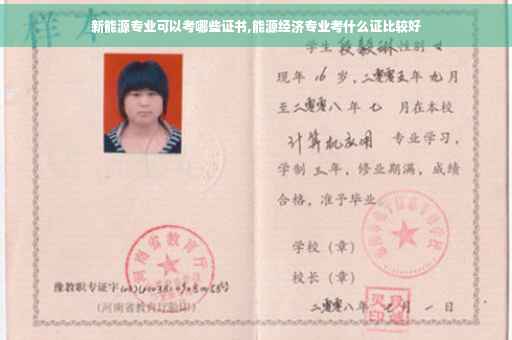 新能源专业可以考哪些证书,能源经济专业考什么证比较好
样本
学生 段毅琳 性别 女
现年 16 岁,二零零五年 九月
至二零零八年 七 月在本校
计算机应用 专业学习,
学制 三年,修业期满,成绩
合格,准予毕业
学校(章)
校长(章)
二零零八年 月 一 日
河南省教育厅
豫教职专证字
(河南省教育厅验印)